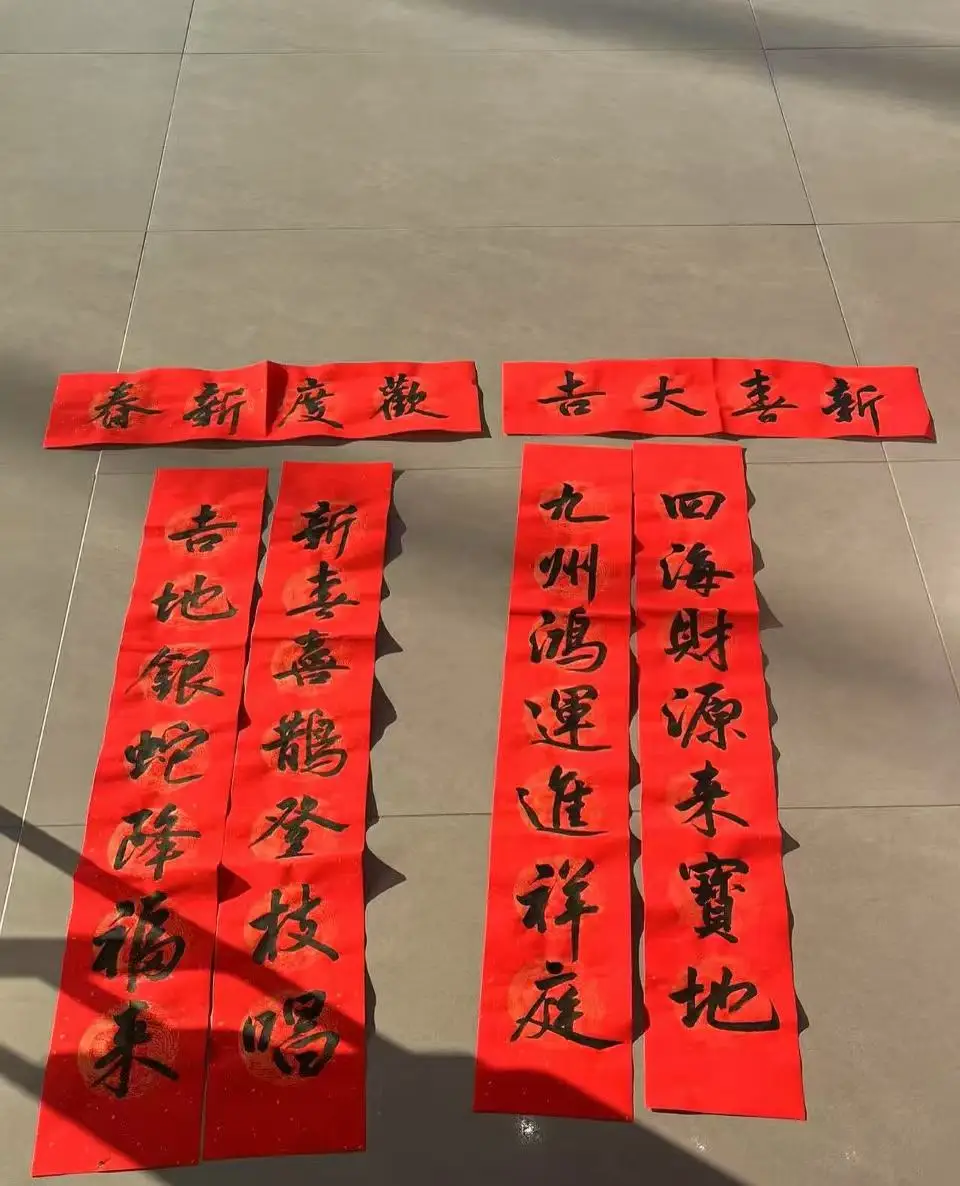 歡度新春
新春喜鵲登枝唱
吉地銀蛇降福来
新喜大吉
四海財源来寶地
九州鴻運進祥庭